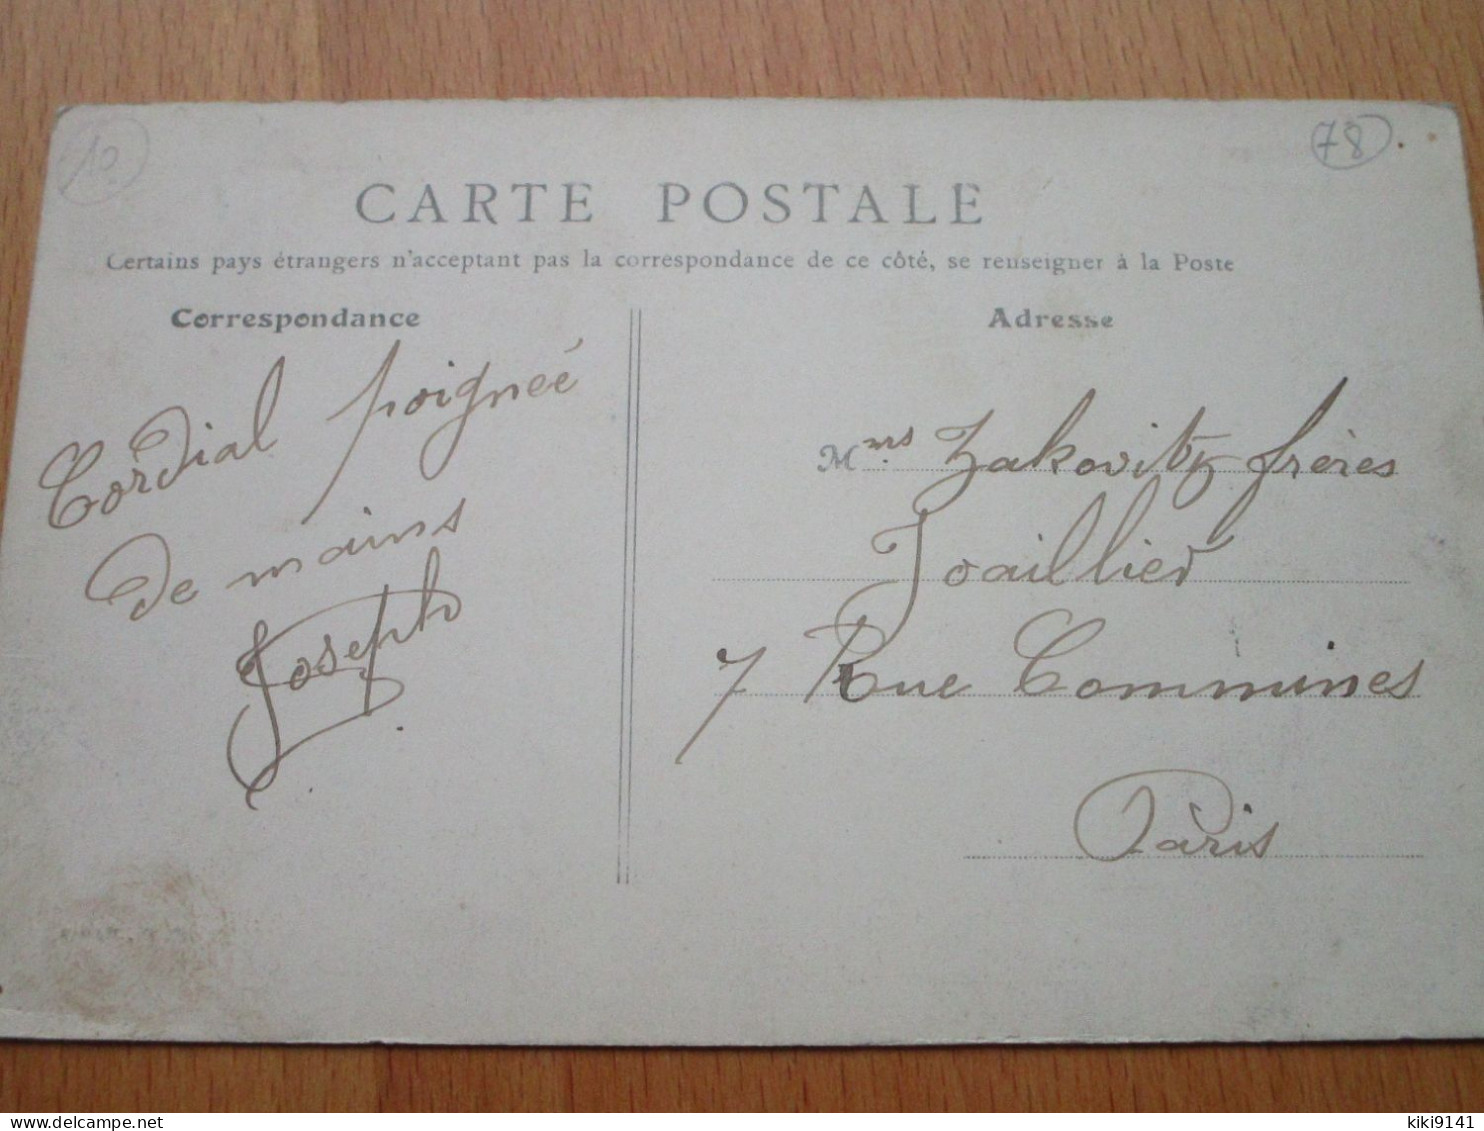 10
78
CARTE POSTALE
Certains pays étrangers n'acceptant pas la correspondance de ce côté, se renseigner à la Poste
Correspondance
Cordial poignée
de mains
Joseph
Adresse
Mrs Zakovitz frères
Joaillier
7 Rue Commines
Paris
delcampe.net
kiki9141